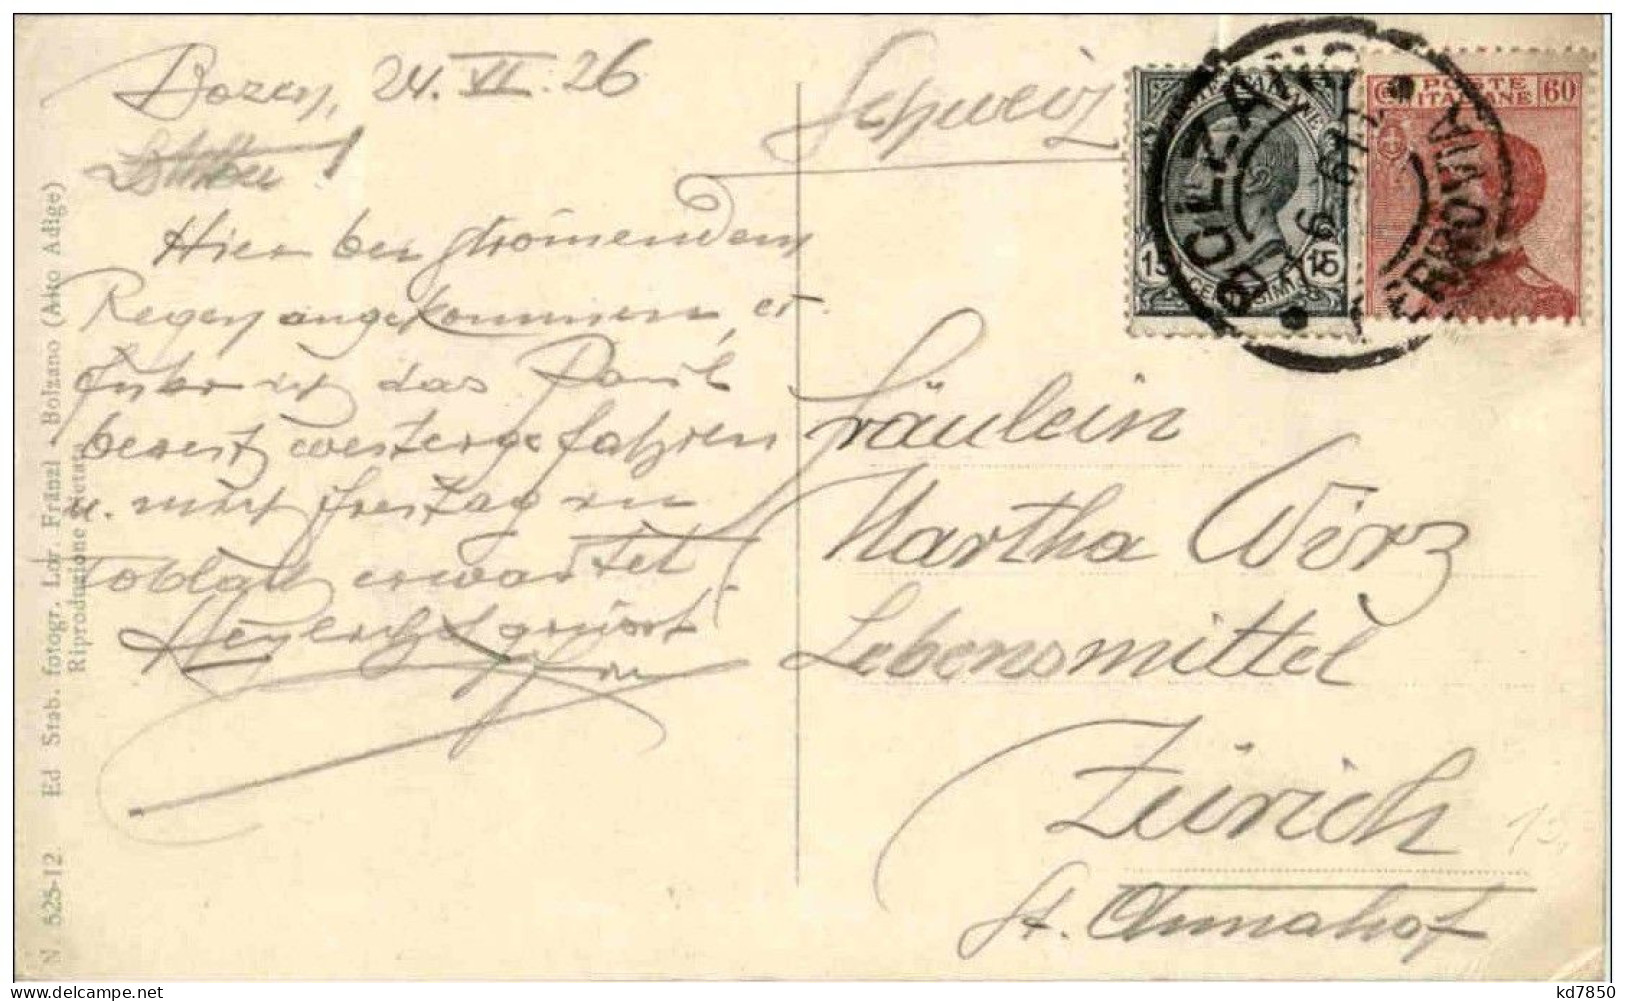 Bozen, 24. VI. 26
Hier bei strömendem
Regen angekommen, er
fuhr ich das Paul
bereits weitergefahren
u. mich Freitag in
Toblach erwartet
Schweiz
POSTE
ITALIANE
60
15
15
BOLZANO
FERROVIA
Fräulein
Martha Wirz
Lebensmittel
Zürich
St. Annahof
13.
N 525-12. Ed Stab. fotogr. Lor. Fränzl - Bolzano (Alto Adige)
Riproduzione vietata
delcampe.net
kd7850